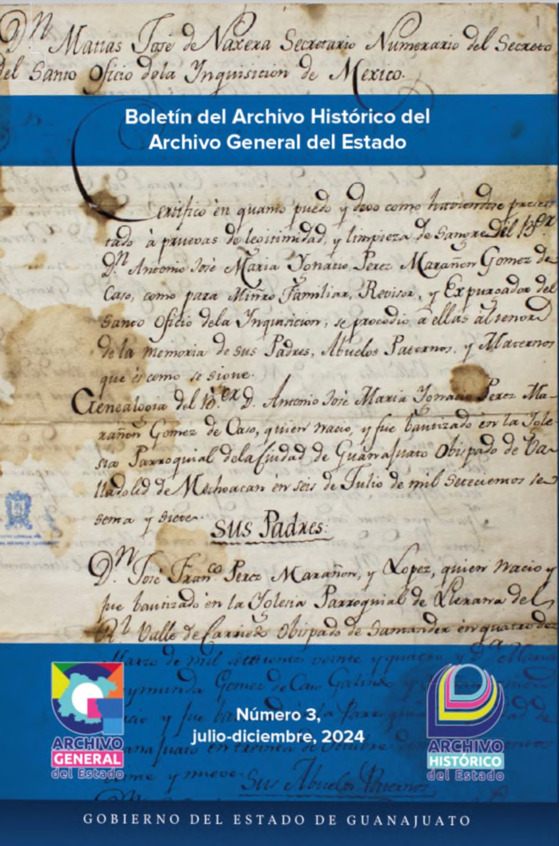 Dn Matias José de Naxera Secretario Numerario del Secreto
del Santo Oficio dela Inquisicion de Mexico.
Boletín del Archivo Histórico del
Archivo General del Estado
Certifico en quanto puedo y devo como haviendose presen
tado à pruebas de legitimidad, y limpieza de Sangre del Br
Dn Antonio José Maria Ygnacio Perez Marañon Gomez de
Caso, como para Minro Familiar, Revisor, y Expurgador del
Santo Oficio dela Inquisicion, se procedió à ellas al tenor
de la memoria de sus Padres, Abuelos Paternos, y Maternos
que es como se sigue.
Genealogia del Br D. Antonio José Maria Ygnacio Perez Ma-
rañon Gomez de Caso, quien nacio, y fue bautizado en la Ygle
sia Parroquial dela Ciudad de Guanajuato Obispado de Va-
lladolid de Mechoacan en seis de Julio de mil setecientos se
senta y siete.
SUS Padres:
Dn José Franco Perez Marañon, y Lopez, quien nacio y
fue bautizado en la Yglesia Parroquial de Llerana del
Valle de Carriedo Obispado de Santander en quatro de
Marzo de mil setecientos veinte y quatro, y Da
Raymunda Gomez de Caso
y fue
y nueve.
Sus Abuelos Paternos
Número 3,
julio-diciembre, 2024
ARCHIVO
GENERAL
del Estado
ARCHIVO
HISTÓRICO
del Estado
GOBIERNO DEL ESTADO DE GUANAJUATO